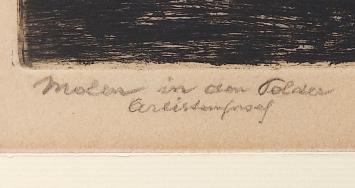 Molen in den Polder
Artistenproef